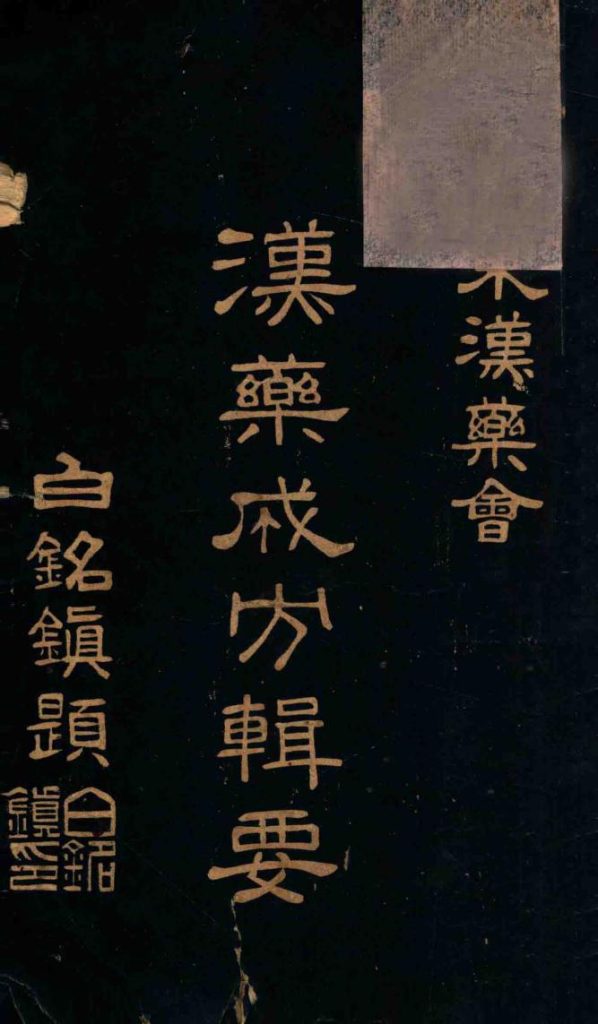 漢藥會
漢藥成方輯要
白銘鎮題
白銘
鎮印